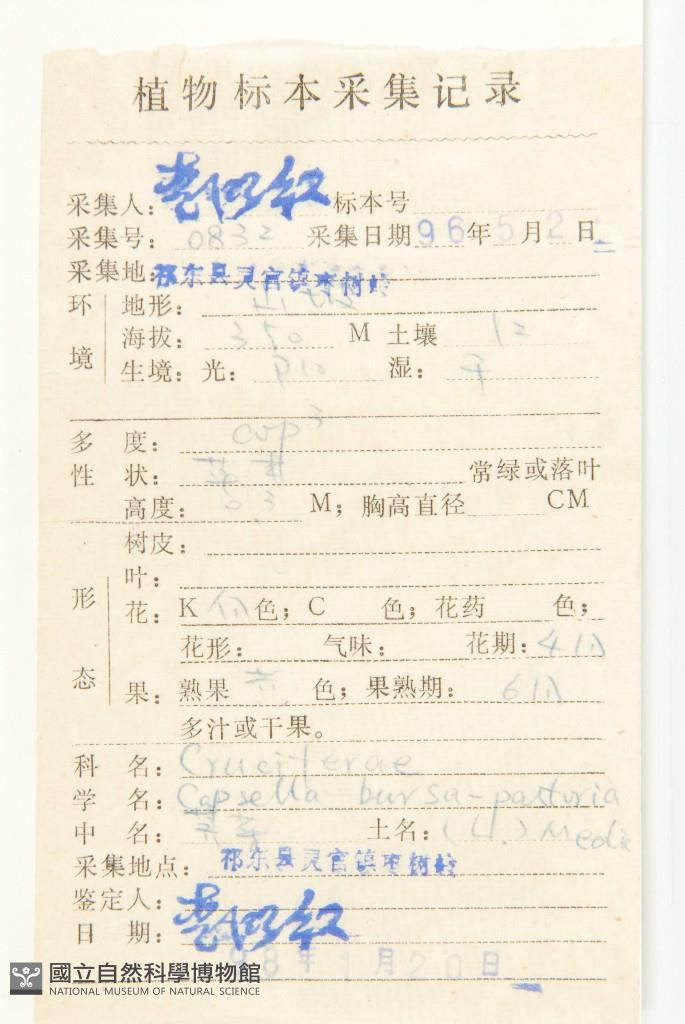 植物标本采集记录
采集人： 标本号
采集号：0832 采集日期96年5月2日
采集地：祁东县灵官镇枣树岭
环境 地形：
海拔：350 M 土壤
生境：光： 湿：干
多度：cop3
性状： 常绿或落叶
高度：0.3 M；胸高直径 CM
形态 树皮：
叶：
花：K 色；C 色；花药 色；
花形： 气味： 花期：4月
果：熟果 色；果熟期：6月
多汁或干果。
科名：Cruciferae
学名：Capsella bursa-pastoria
中名： 土名：(L.) Medic
采集地点：祁东县灵官镇枣树岭
鉴定人：
日期：98年1月20日
國立自然科學博物館
NATIONAL MUSEUM OF NATURAL SCIENCE